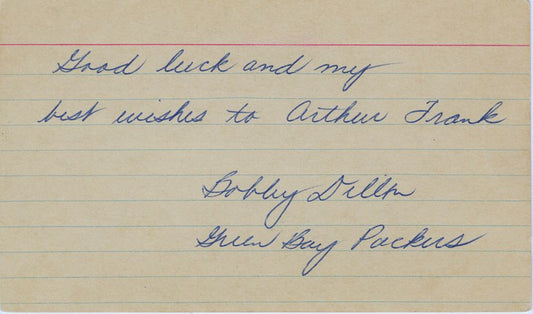 Good luck and my
best wishes to Arthur Frank
Bobby Dillon
Green Bay Packers